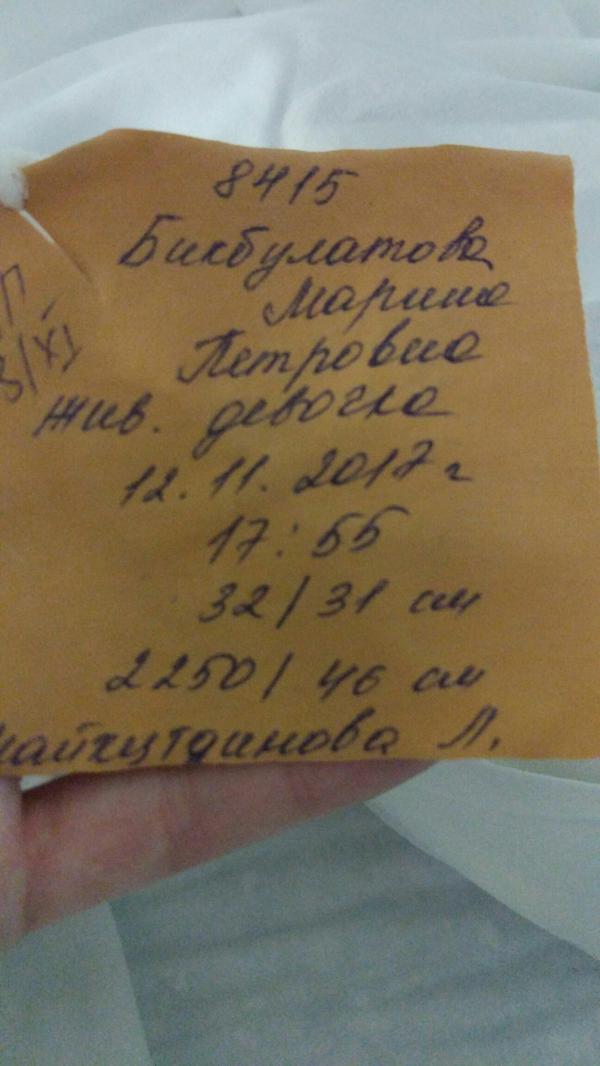 8415
Бикбулатова
Марина
Петровна
Жив. девочка
12.11.2017 г
17:55
32/31 см
2250/46 см
Л.